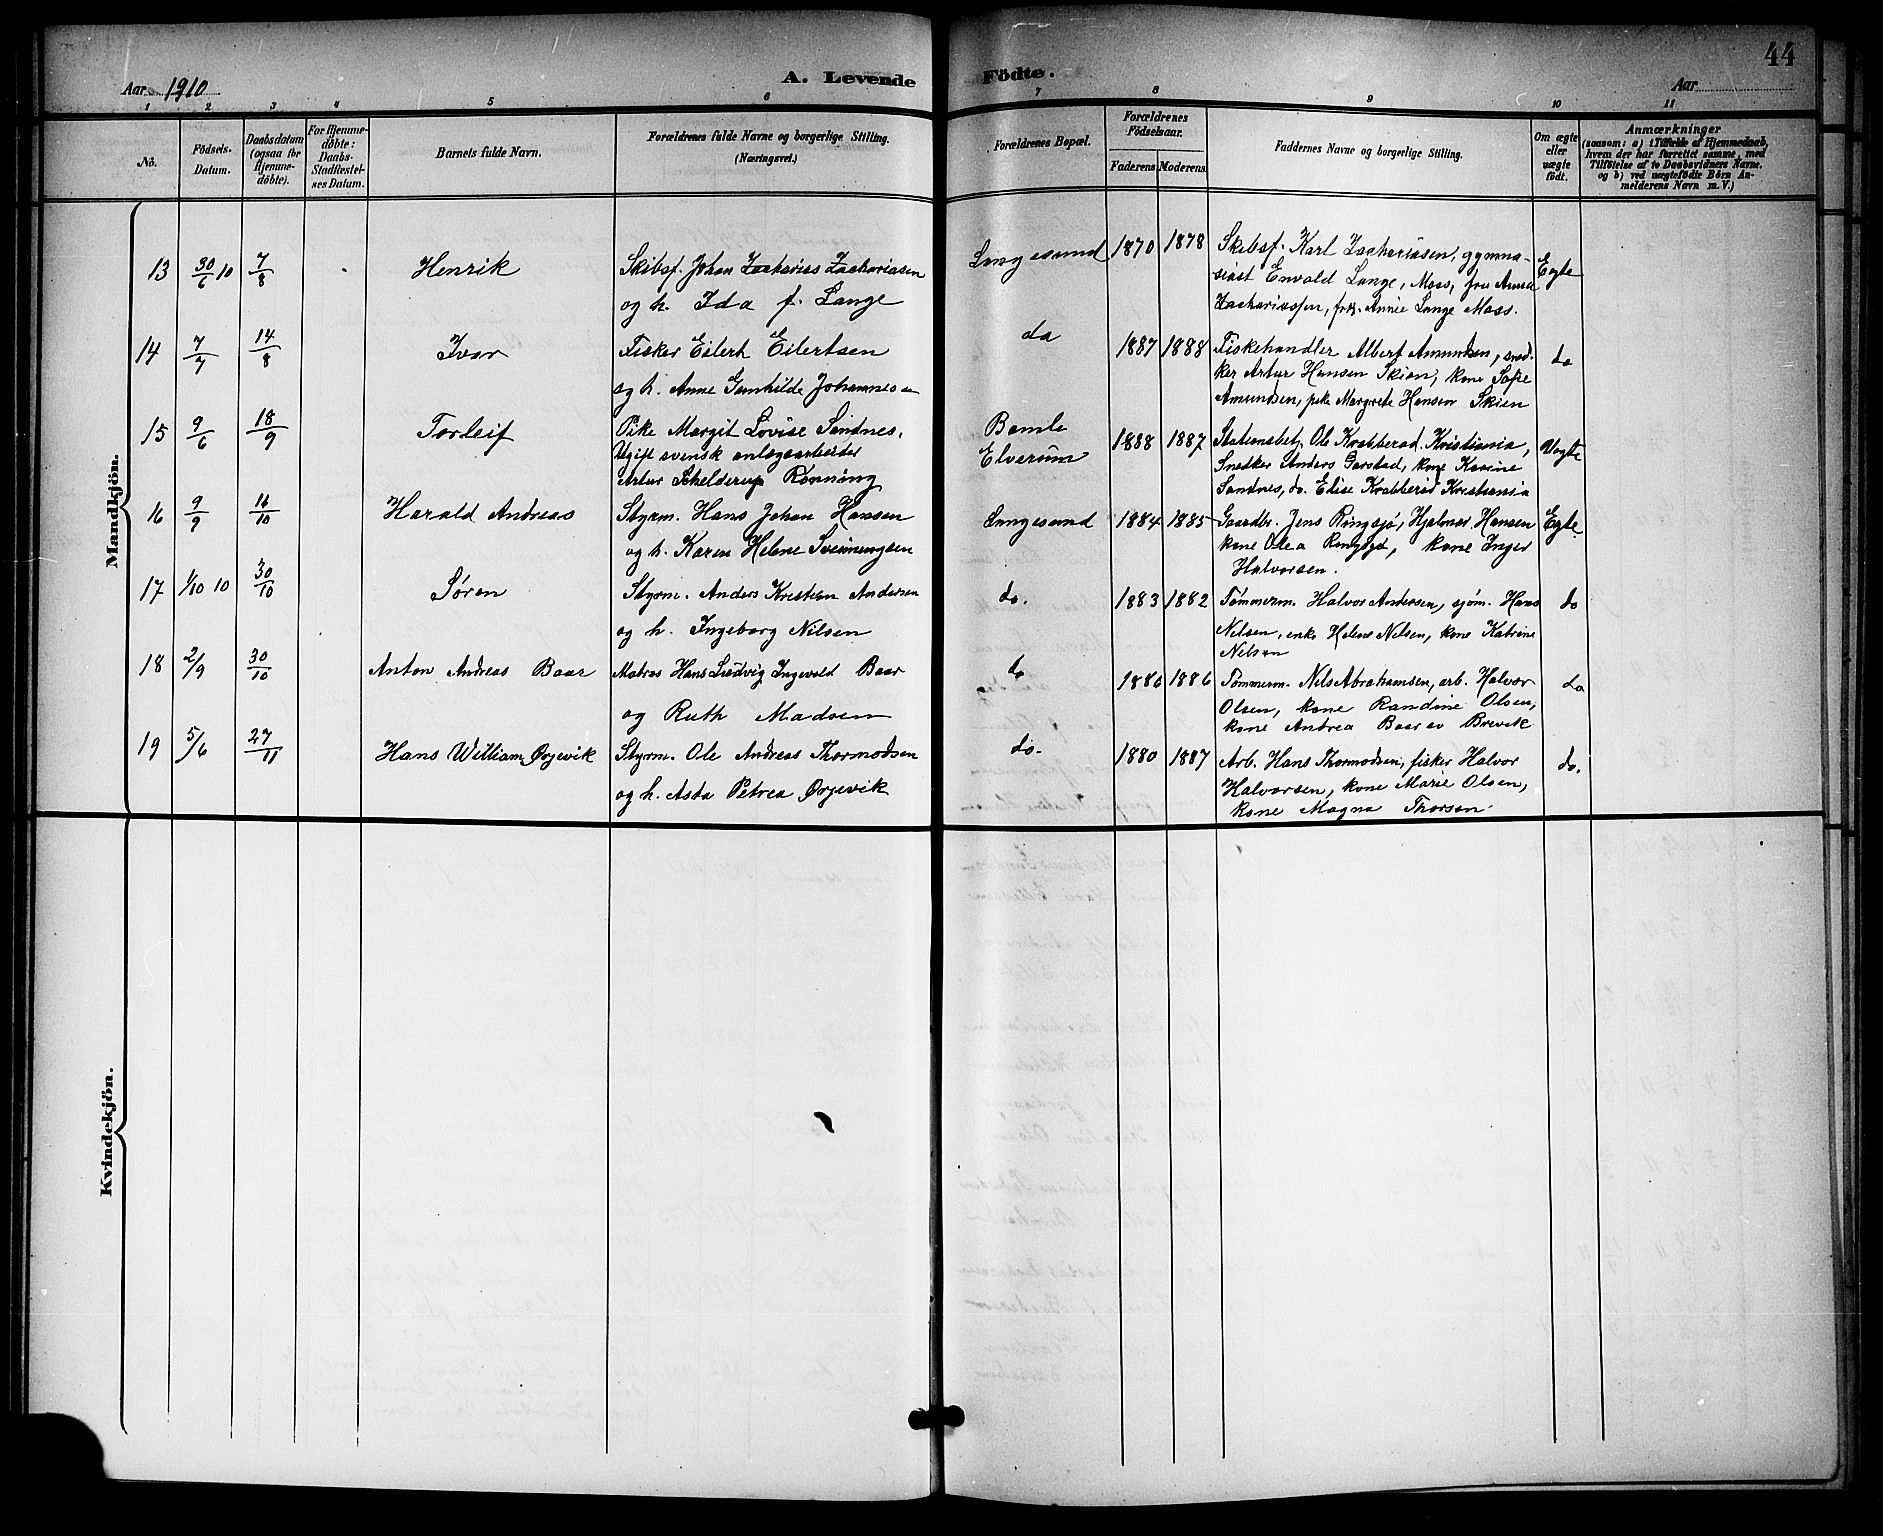 44
Aar 1910
A. Levende Födte.
Aar
1 2 3 4 5 6 7 8 9 10 11
No.
Födsels-Datum.
Daabsdatum (ogsaa for Hjemmedöbte).
For Hjemmedöbte: Daabs-Stadfæstelses Datum.
Barnets fulde Navn.
Forældrenes fulde Navne og borgerlige Stilling. (Næringsvei.)
Forældrenes Bopæl.
Forældrenes Födselsaar.
Faderens. Moderens.
Faddernes Navne og borgerlige Stilling.
Om ægte eller uægte födt.
Anmærkninger
(saasom: a) i Tilfælde af Hjemmedaab, hvem der har forrettet samme, med Tilföielse af to Daabsvidners Navne, og b) ved uægtefödte Börn Anmelderens Navn m. V.)
Mandkjön.
13 30/6 10 7/8 Henrik Skibsf. Johan Zacharias Zachariasen Langesund 1870 1878 Skibsf. Karl Zachariasen, gymna-
og h. Ida f. Lange siast Envald Lange, Moss, fru Anna Egte
Zachariassen, frk. Annie Lange Moss.
14 7/7 14/8 Ivar Fisker Eilert Eilertsen do 1887 1888 Fiskehandler Albert Amundsen, sned- do
og h. Anne Gunhilde Johannes ker Artur Hansen Skien, kone Sofie
Amundsen, pike Margrete Hansen Skien
15 9/6 18/9 Torleif Pike Margit Lovise Sandnes, Bamle 1888 1887 Stationsbet. Ole Krabberød Kristiania, Uegte
Ugift svensk anlægsarbeider Elverum Snedker Anders Garstad, kone Karine
Artur Schelderup Rønning Sandnes, do. Elise Krabberød Kristiania
16 9/9 16/10 Harald Andreas Styrm. Hans Johan Hansen Langesund 1884 1885 Gaardbr. Jens Ringsjø, Hjalmar Hansen Egte
og h. Karen Helene Sveinungsen kone Olea Ringsjø, kone Inger
Halvorsen.
17 1/10 10 30/10 Søren Styrm. Anders Kristian Andersen do. 1883 1882 Tømmerm. Halvor Andersen, sjøm. Hans do
og h. Ingeborg Nilsen Nilsen, enke Helene Nilsen, kone Katrine
Nilsen
18 2/9 30/10 Anton Andreas Baar Matros Hans Ludvig Ingevald Baar do 1886 1886 Tømmerm. Nils Abrahamsen, arb. Halvor do
og Ruth Madsen Olsen, kone Randine Olsen,
kone Andrea Baar av Brevik
19 5/6 27/11 Hans William Ørjevik Styrm. Ole Andreas Thormodsen do. 1880 1887 Arb. Hans Thormodsen, fisker Halvor do.
og h. Asta Petrea Ørjevik Halvorsen, kone Marie Olsen,
kone Magna Thorsen.
Kvindekjön.